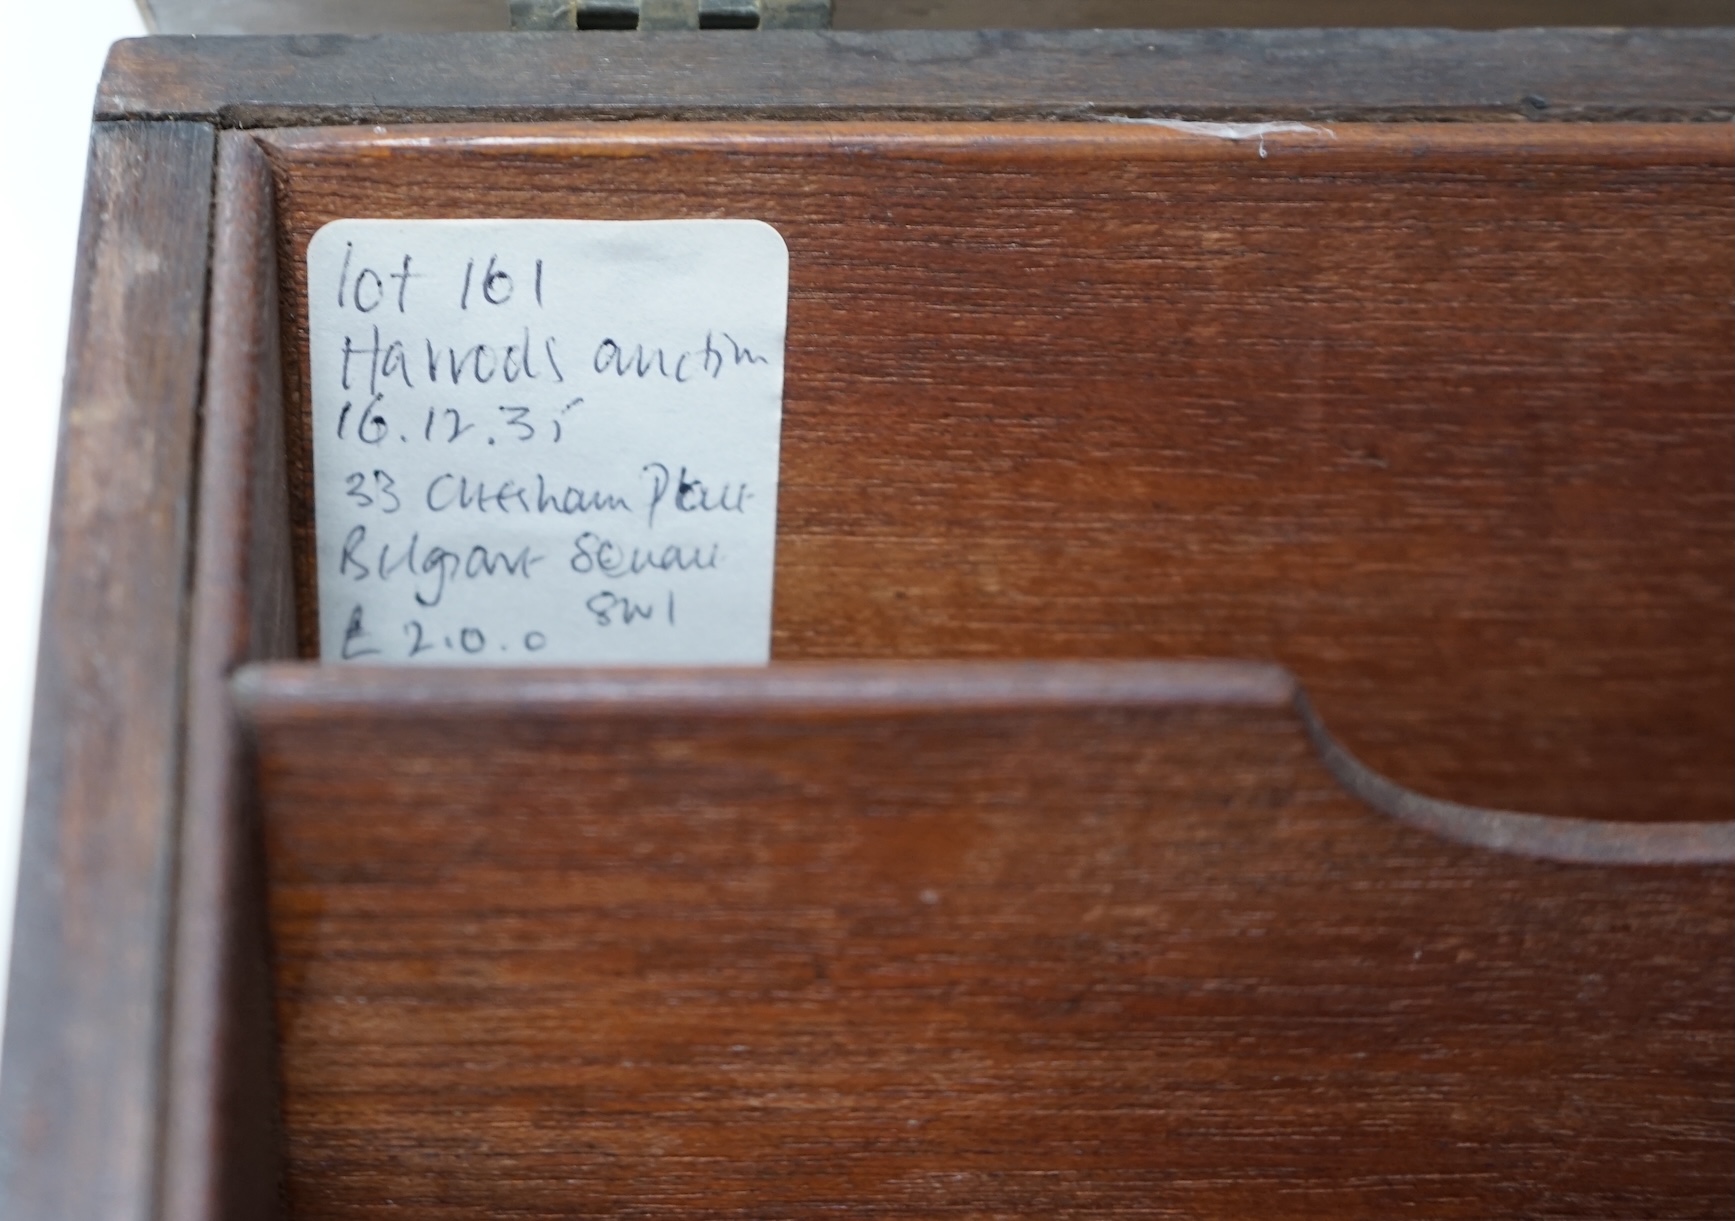 lot 161
Harrods auction
16.12.35
33 Chesham Place
Belgrave Square
SW1
£ 2.0.0